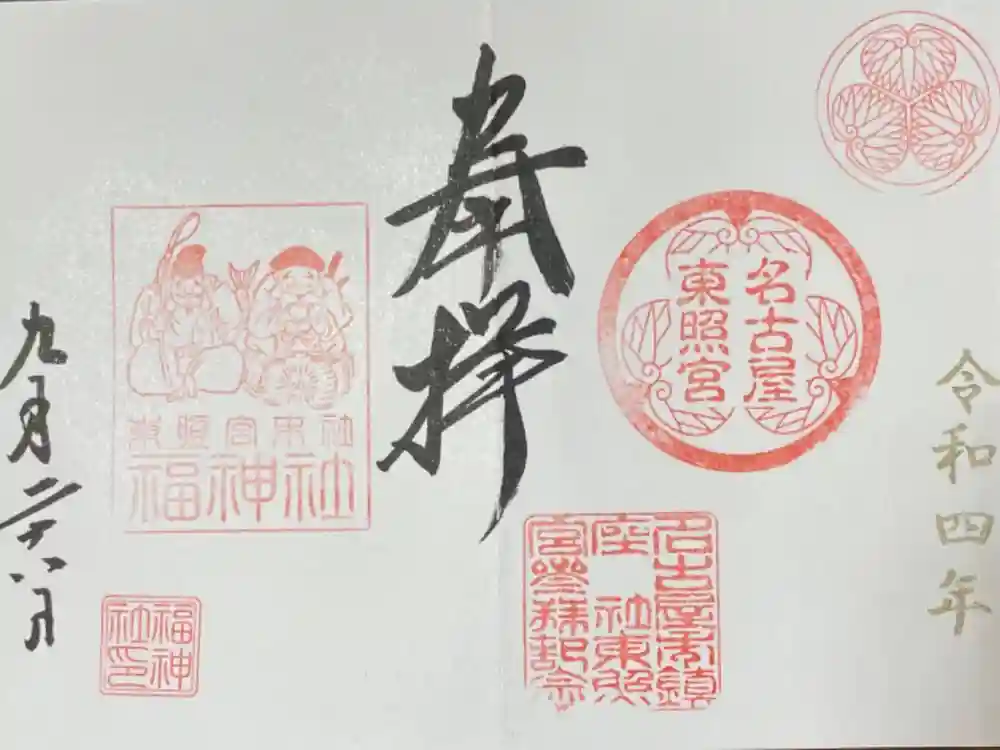 令和四年
名古屋
東照宮
名古屋市鎮
座 社東照
宮参拝記念
奉拝
東照宮末社
福神社
福神
社印
九月二十八日